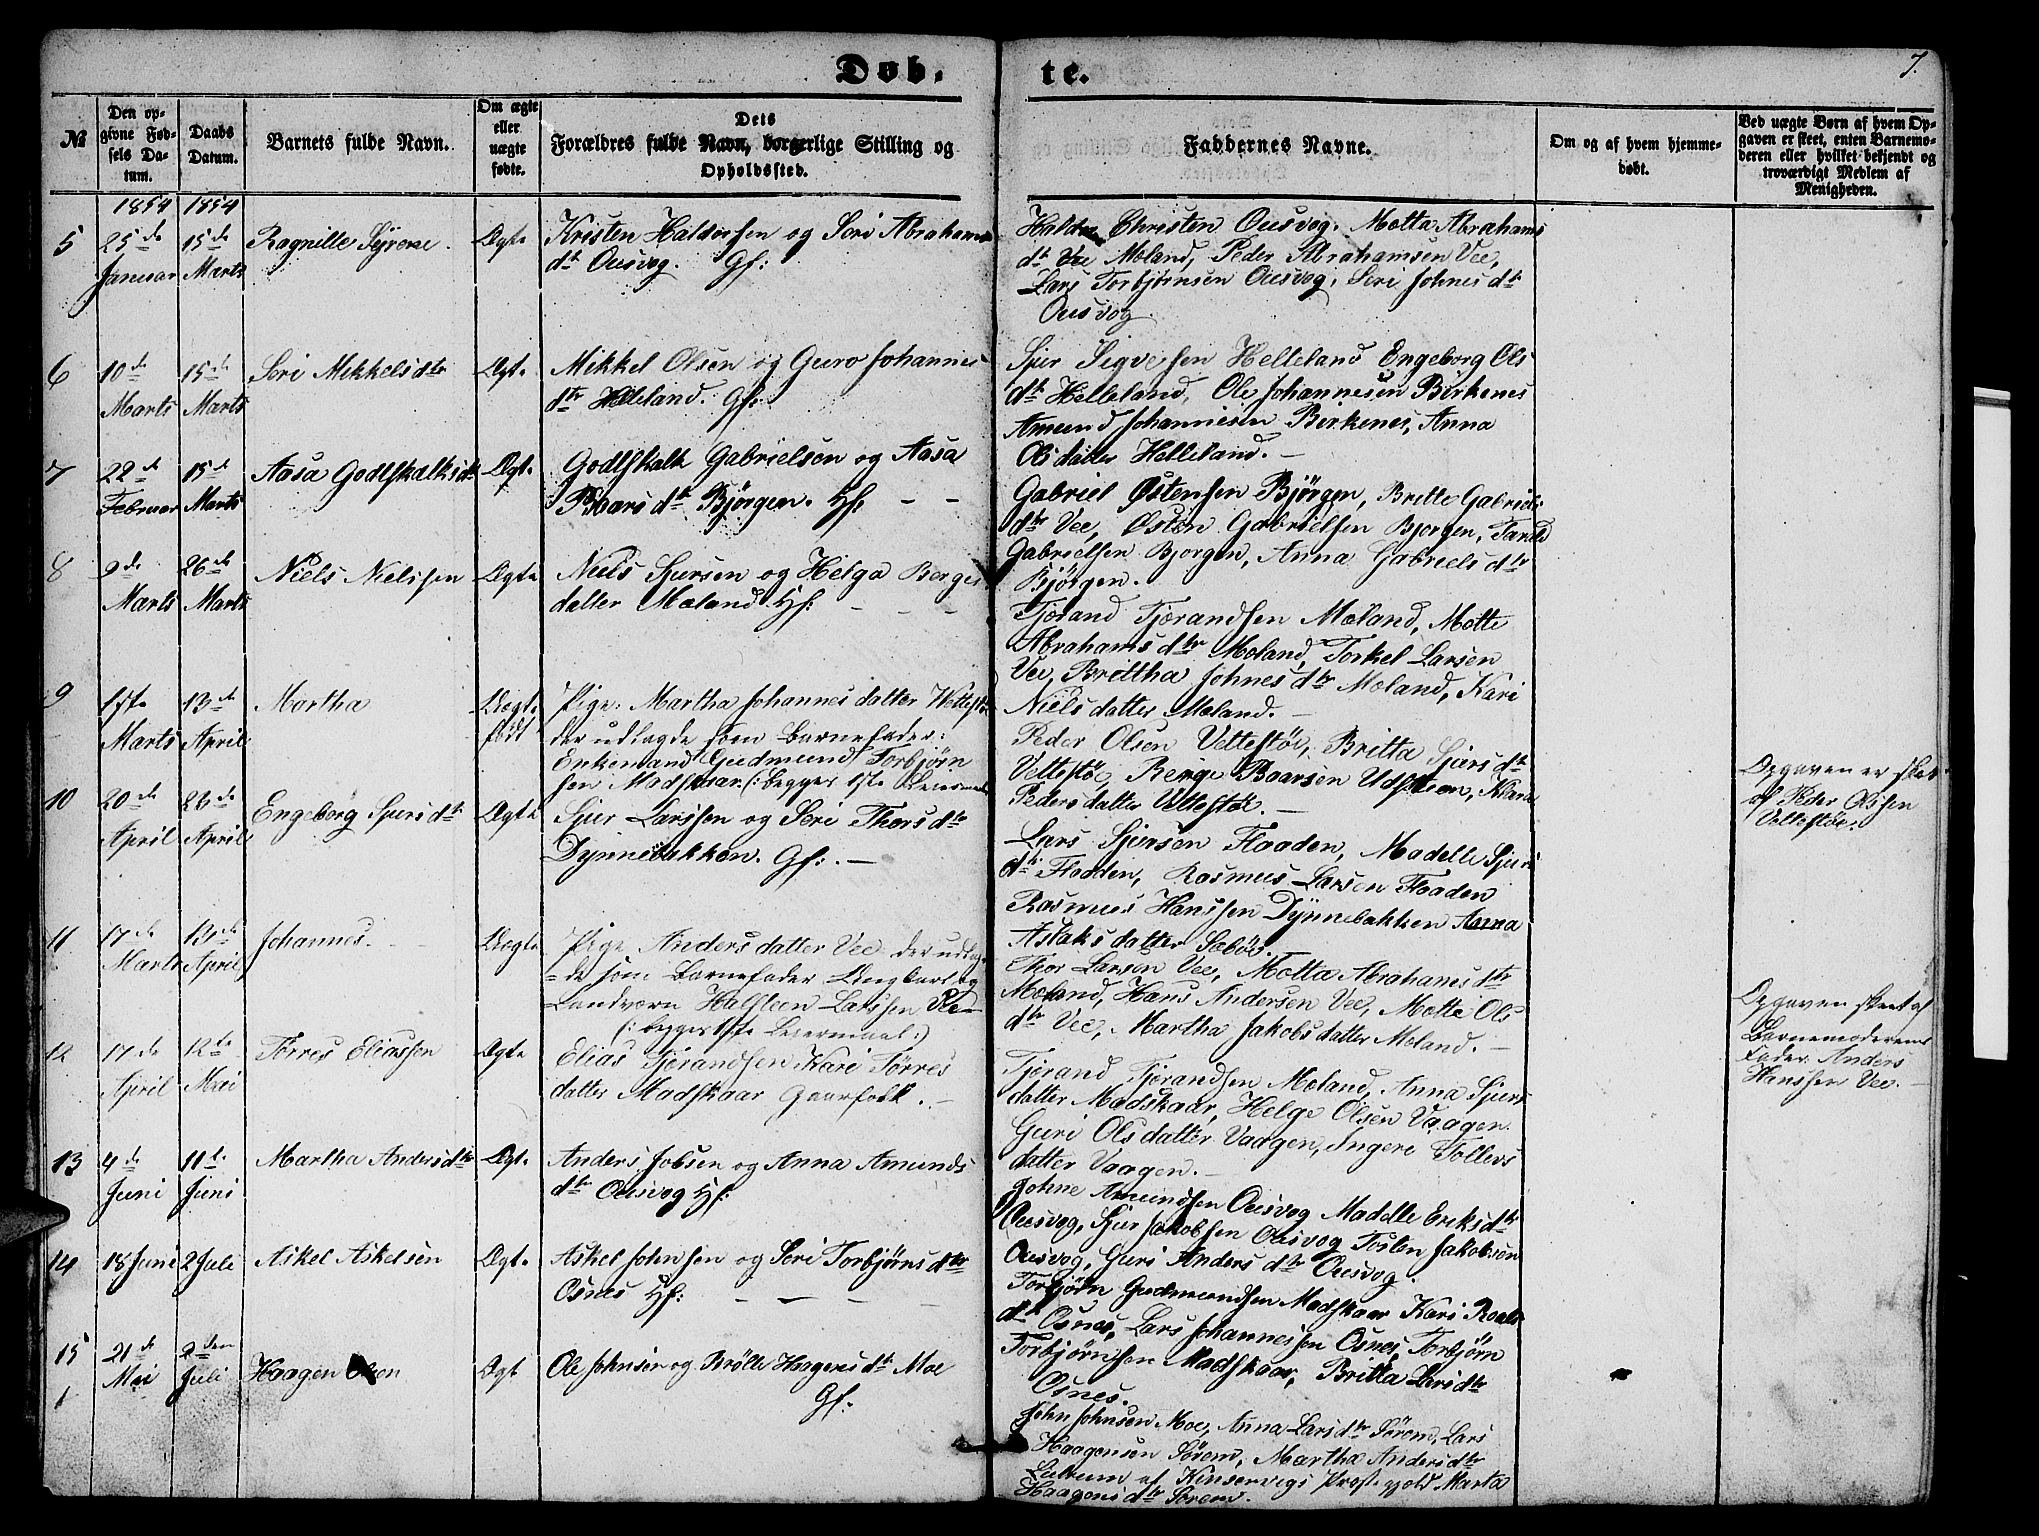 Døb-te.
7.
№
Den opgivne Fødsels Datum.
Daabs Datum.
Barnets fulde Navn.
Om ægte eller uægte fødte.
Dets Forældres fulde Navn, borgerlige Stilling og Opholdssted.
Faddernes Navne.
Om og af hvem hjemmedøbt.
Ved uægte Børn af hvem Opgaven er skeet, enten Barnemoderen eller hvilket bekjendt og troværdigt Medlem af Menigheden.
1854 1854
5 25de Januar 15de Marts Ragnille Syverse Ægte
Kristen Haldorsen og Seri Abrahams
dtr Ousvog. Gf:
Christen Ousvog, Motta Abrahams
dtr Vee Moland, Peder Abrahamsen Vee,
Lars Torbjørnsen Ousvog, Seri Johnes dtr
Ousvog.
6 10de Marts 15de Marts Seri Mikkelsdtr Ægte
Mikkel Olsen og Guro Johannes
dtr Helleland. Gf:
Sjur Sigvesen Helleland Engeborg Ols
dtr Helleland, Ole Johannesen Birkenes
Amund Johannesen Birkenes, Anna
Olsdatter Helleland. —
7 22de Februar 15de Marts Aasa Godtskalksdtr Ægte
Godtskalk Gabrielsen og Aasa
Baarsdtr Bjørgen. Hf. — —
Gabriel Østensen Bjørgen, Britte Gabriels
dtr Vee, Østen Gabrielsen Bjorgen,
Gabrielsen Bjorgen, Anna Gabriels dtr
Bjørgen.
8 9de Marts 26de Marts Niels Nielssen Ægte
Niels Sjursen og Helga Berges
datter Moland Hf: — — —
Tjørand Tjørandsen Moland, Motte
Abrahams dtr Moland, Torkel Larsen
Vee, Brittha Johnes dtr Moland, Kari
Nielsdatter Moland. —
9 17de Marts 13de April Martha Uægte født
Pige: Martha Johannesdatter Vettestø
der udlagde som Barnefader:
Enkemand Gudmund Torbjørn
sen Madskaar (: begges 1ste Leiermaal
Peder Olsen Vettestøe, Britta Sjurs dtr
Vettestø, Berge Baarsen
Pedersdatter Vettestøe. —
Opgaven er skeet
af Peder Olsen
Vettestøe.
10 20de April 23de April Engeborg Sjursdtr Ægte
Sjur Larssen og Seri Thorsdtr
Dynnebakken. Gf: . —
Lars Sjursen Flaaden, Madelle Sjurs
dtr Flodden, Rasmus Larsen Flaaden
Rasmus Hanssen Dynnebakken Anna
Aslaksdatter Sæbøe.
11 17de Marts 13de April Johannes. Uægte
Pige Andersdatter Vee der udlag
-de som Barnefader Ungkarl og
Landværn Halsteen Larssen Vee
(: begges 1ste Leiermaal :)
Thor Larsen Vee, Motta Abrahams dtr
Moland, Hans Andersen Vee, Motte Ols
dtr Vee, Martha Jakobsdatter Moland. —
Opgaven skeet af
Barnemoderens
Fader Anders
Hanssen Vee.
12 17de April 12te Mai Torres Eliassen Ægte
Elias Tjørandsen Kari Tørres
datter Madskaar Gaarfolk. —
Tjørand Tjørandsen Moland, Anna Sjurs
datter Madskaar, Helge Olsen Vaagen
Guri Olsdatter Vaagen, Ingeri Tollevs
datter Vaagen. —
13 4de Juni 11te Juni Martha Andersdtr Ægte
Anders Jobsen og Anna Amunds
dtr Ousvog Hf:
Johne Amundsen Ousvog Madelle Eriksdtr
Ousvog, Sjur Jakobsen Ousvog Tosten Jakobsen
Ousvog, Guri Anders dtr Ousvog.
14 18 Juni 2 Juli Askel Askelsen Ægte
Askel Johnsen og Seri Torbjørnsdtr
Osnes Hf: — — — —
Torbjørn Gudmundsen Madskaar Kari Roals
dtr Osnes, Lars Johannessen Osnes, Torbjørn
Torbjørnsen Madskaar, Britta Larsdtr
Osnes.
15 21de Mai 2den Juli Haagen Olsen Ægte
Ole Johnsen og Brølle Haagensdtr Moe
Gf.
John Johnsen Moe, Anna Larsdtr Sørem, Lars
Haagensen Sørem, Martha Andersdtr
af Kinservigs Præstegjeld Marta
Haagensdtr Sørem.